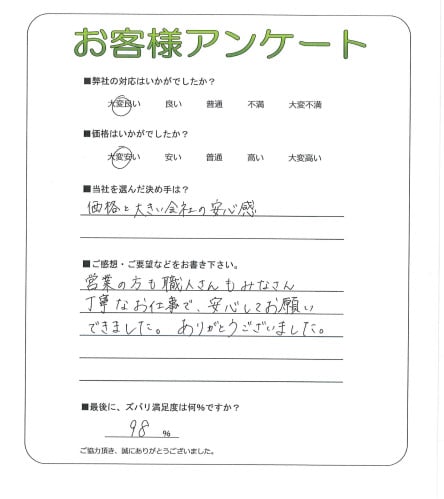 お客様アンケート
■弊社の対応はいかがでしたか？
大変良い 良い 普通 不満 大変不満
■価格はいかがでしたか？
大変安い 安い 普通 高い 大変高い
■当社を選んだ決め手は？
価格と大きい会社の安心感
■ご感想・ご要望などをお書き下さい。
営業の方も職人さんもみなさん
丁寧なお仕事で、安心してお願い
できました。ありがとうございました。
■最後に、ズバリ満足度は何%ですか？
98 %
ご協力頂き、誠にありがとうございました。